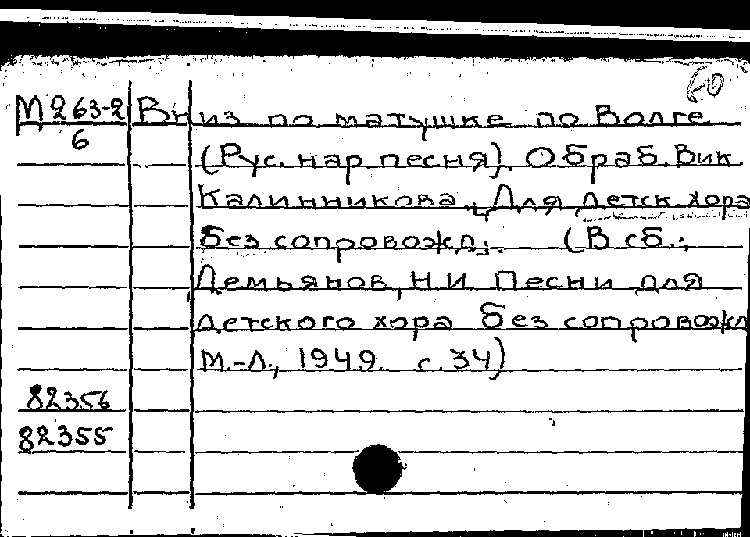 60
М263-2 Вниз по матушке по Волге
6 (Рус. нар песня). Обраб. Вик
Калинникова. Для детск хора
без сопровожд. (В сб.:
Демьянов, Н.И Песни для
детского хора без сопровожд
М.-Л., 1949. с. 34)
82356
82355